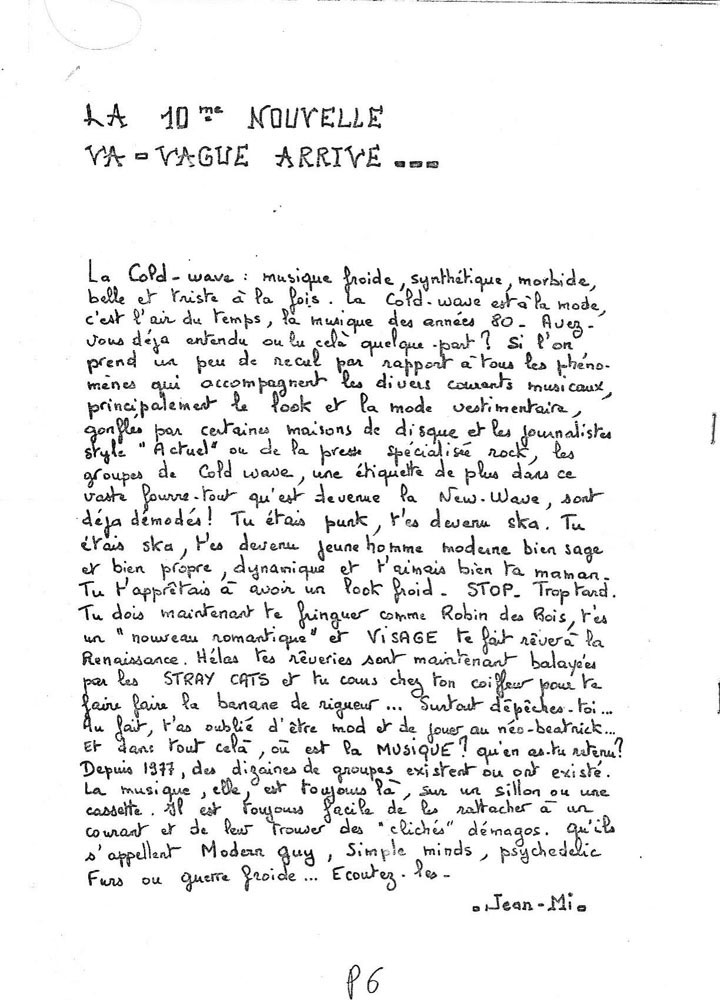 LA 10me NOUVELLE
VA-VAGUE ARRIVE...
La Cold-wave : musique froide, synthétique, morbide,
belle et triste à la fois. La Cold-wave est à la mode,
c'est l'air du temps, la musique des années 80_ Avez-
vous déja entendu ou lu celà quelque-part ? Si l'on
prend un peu de recul par rapport à tous les phéno-
mènes qui accompagnent les divers courants musicaux,
principalement le look et la mode vestimentaire,
gonflés par certaines maisons de disque et les journalistes
style "Actuel" ou de la presse spécialisée rock, les
groupes de Cold wave, une étiquette de plus dans ce
vaste fourre-tout qu'est devenue la New-Wave, sont
déja démodés ! Tu étais punk, t'es devenu ska. Tu
étais ska, t'es devenu jeune homme moderne bien sage
et bien propre, dynamique et t'aimais bien ta maman_
Tu t'apprêtais à avoir un look froid_ STOP_ Trop tard.
Tu dois maintenant te fringuer comme Robin des Bois, t'es
un "nouveau romantique" et VISAGE te fait rêver à la
Renaissance. Hélas tes rêveries sont maintenant balayées
par les STRAY CATS et tu cours chez ton coiffeur pour te
faire faire la banane de rigueur... Surtout dépêches-toi...
Au fait, t'as oublié d'être mod et de jouer au néo-beatnick...
Et dans tout celà, où est la MUSIQUE ? qu'en as-tu retenu?
Depuis 1977, des dizaines de groupes existent ou ont existé.
La musique, elle, est toujours là, sur un sillon ou une
cassette. Il est toujours facile de les rattacher à un
courant et de leur trouver des "clichés" démagos. Qu'ils
s'appellent Modern guy, Simple minds, psychedelic
Furs ou guerre froide... Ecoutez-les_
.Jean-Mi.
P6